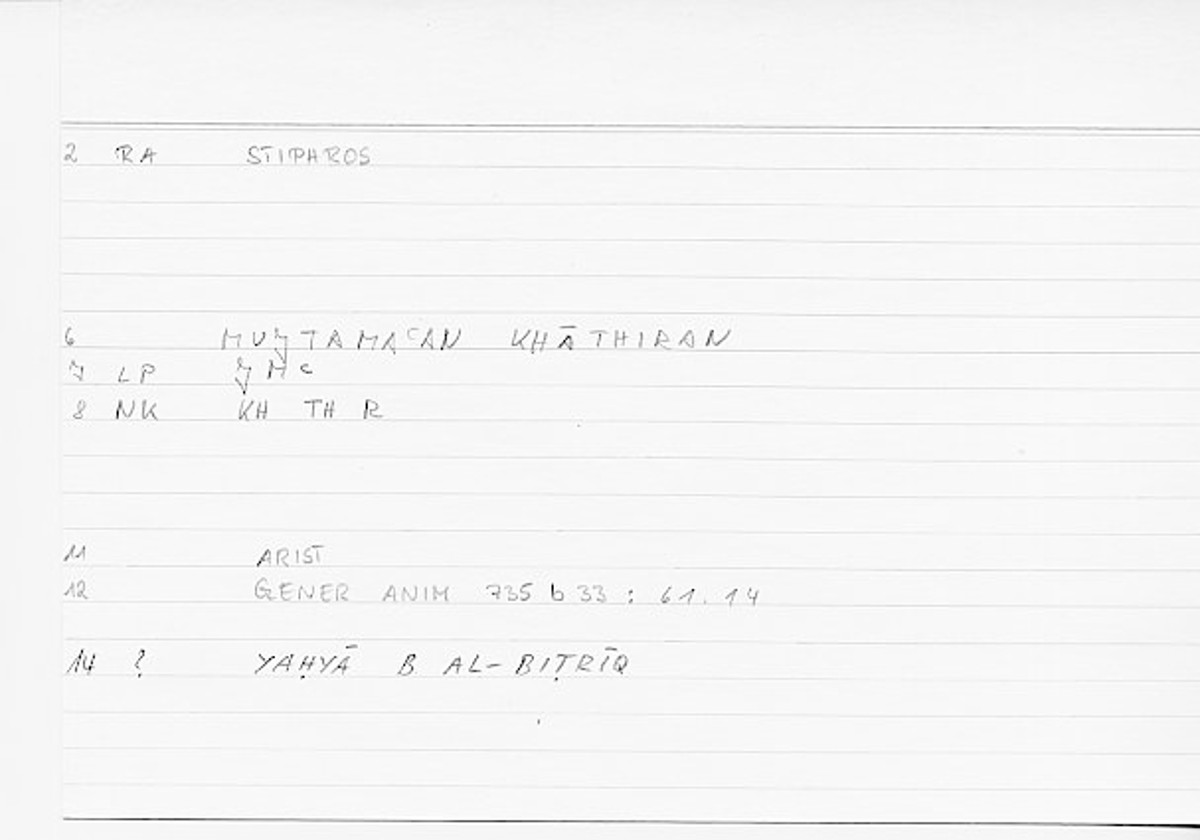 2 RA STIPHROS
6 MUJTAMAᶜAN KHĀTHIRAN
7 LP JMᶜ
8 NK KH TH R
11 ARIST
12 GENER ANIM 735 b 33 : 61.14
14 ? YAḤYĀ B AL-BIṬRĪQ